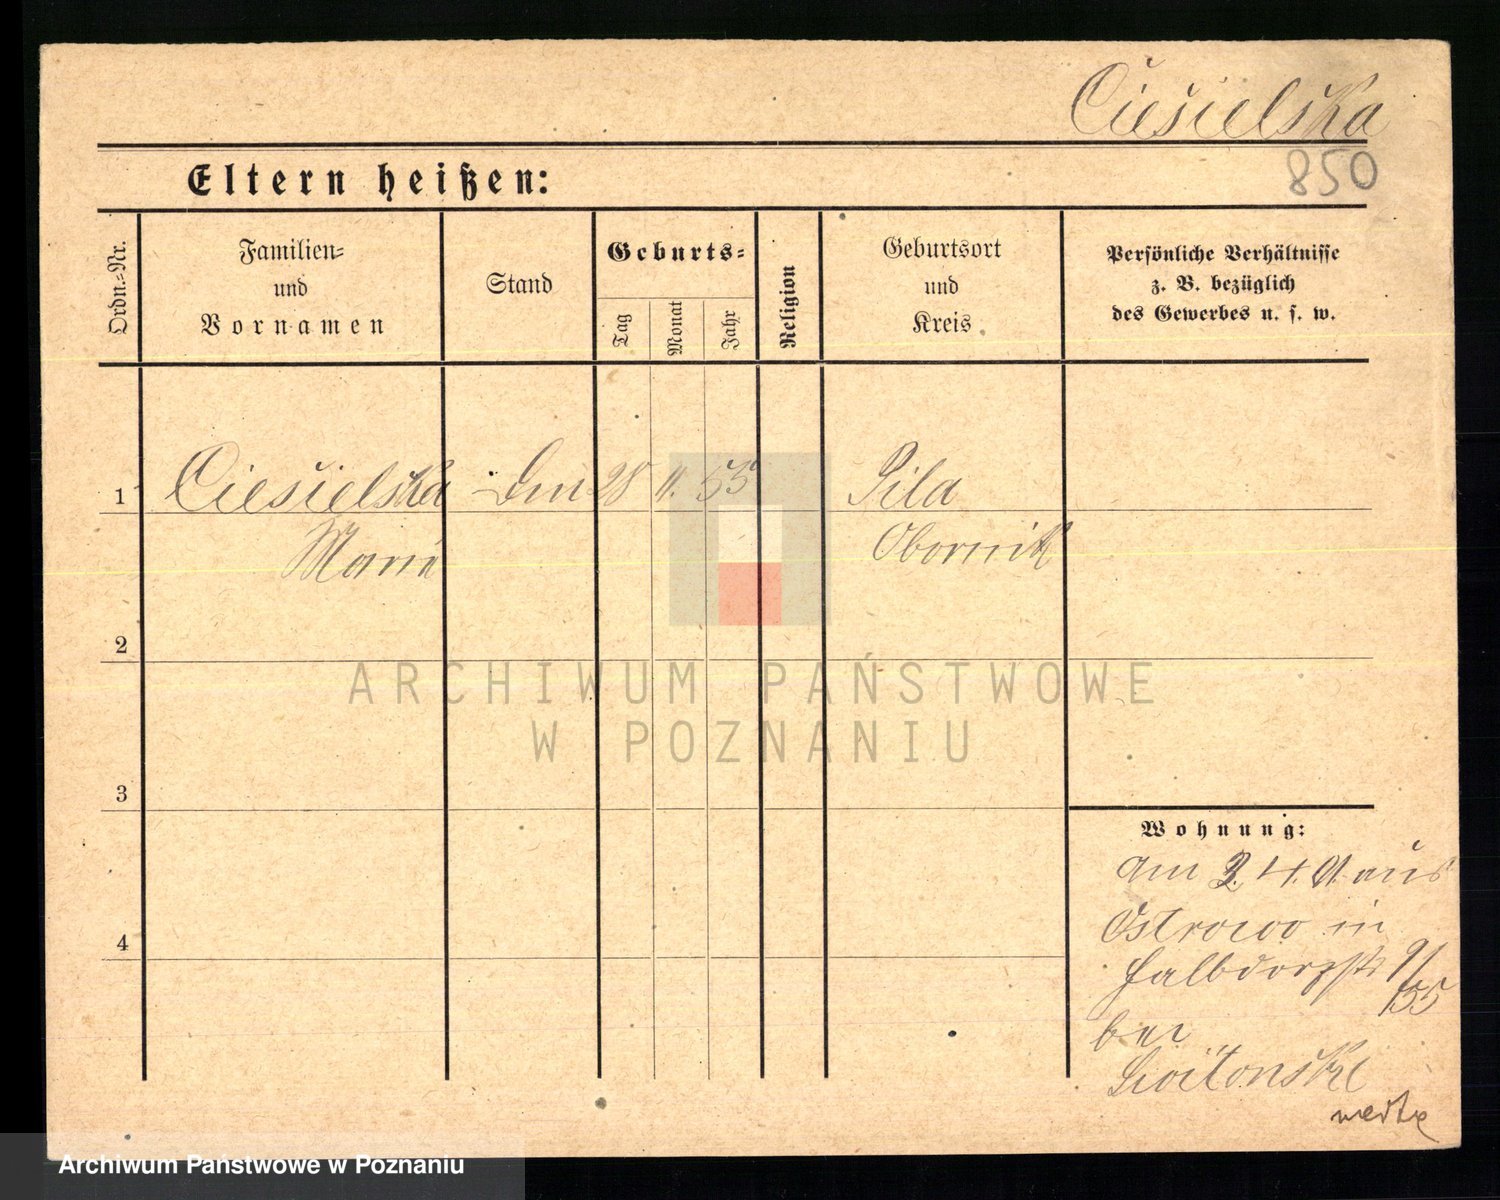 Ciesielska
850
Eltern heißen:
Ordn.-Nr.
Familien-
und
Vornamen
Stand
Geburts-
Tag
Monat
Jahr
Religion
Geburtsort
und
Kreis
Persönliche Verhältnisse
z. B. bezüglich
des Gewerbes u. s. w.
1
Ciesielska
28 11. 55
Pila
Marie
Obornik
2
ARCHIWUM PAŃSTWOWE
W POZNANIU
3
Wohnung:
am 3. 4. 01. aus
Ostrowo in
Halbdorfstr 9/
155
4
bei
Archiwum Państwowe w Poznaniu